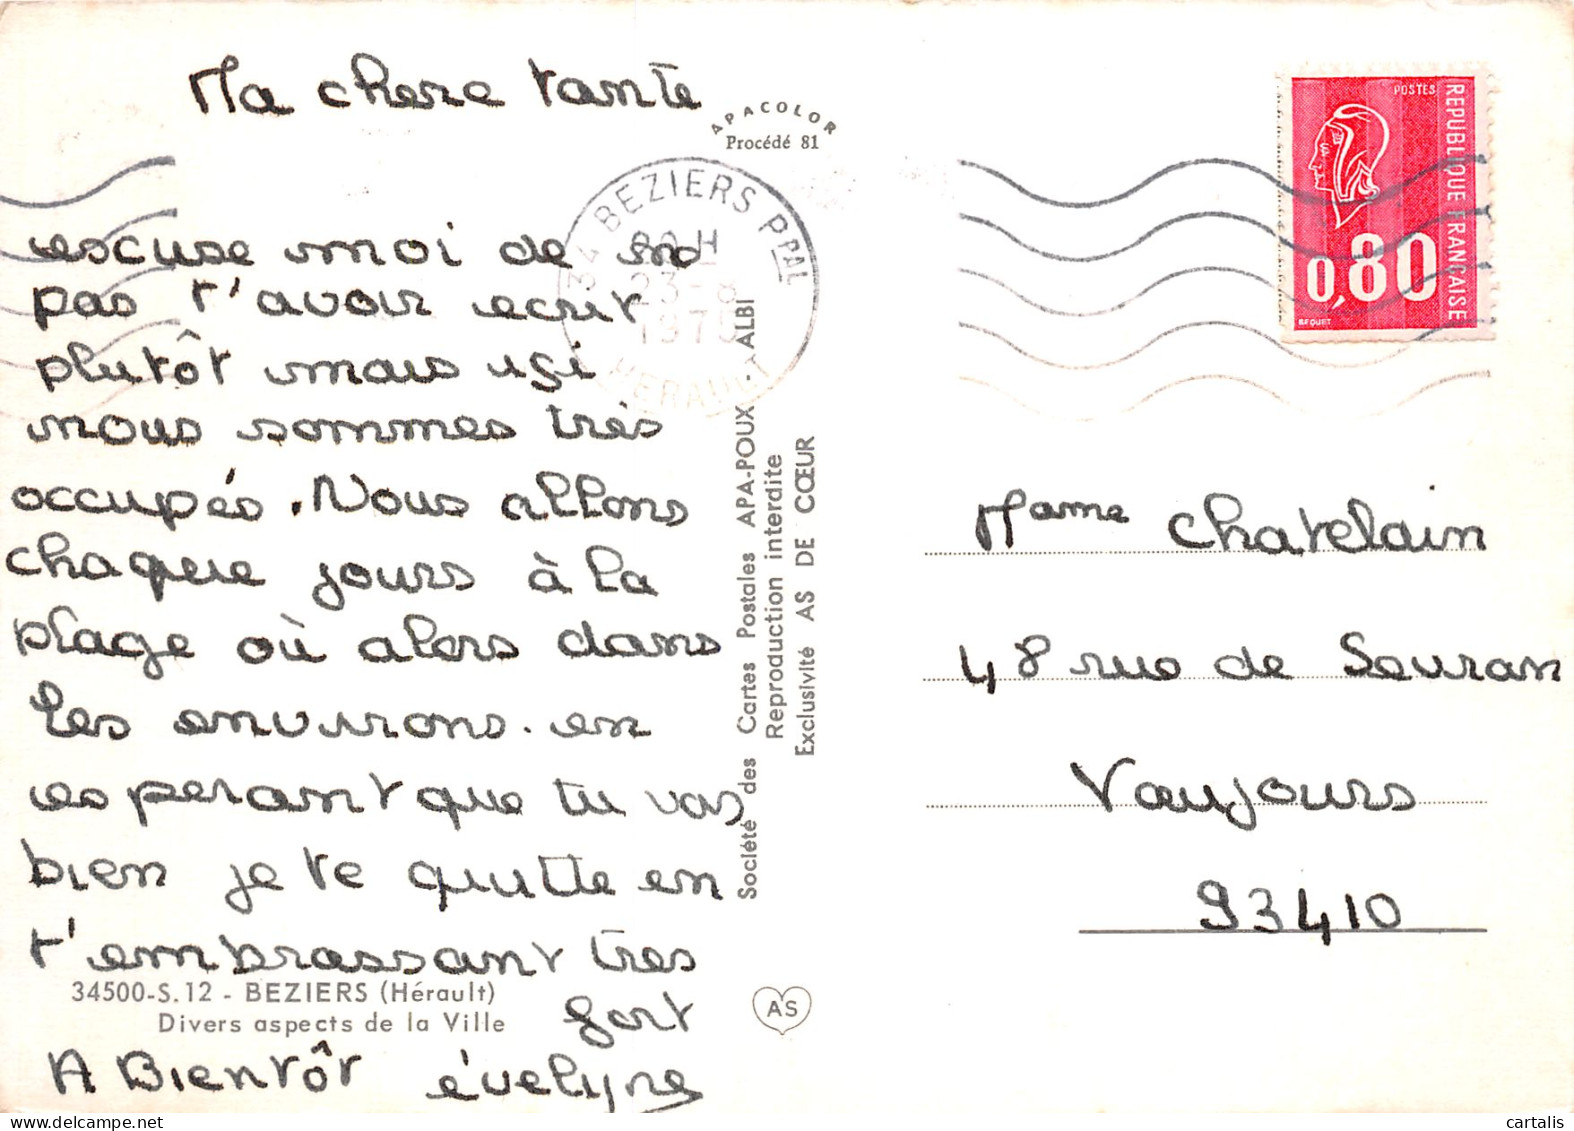 Ma chere tante
APACOLOR
Procédé 81
34 BEZIERS PPAL
23-8
HERAULT
escuse moi de ne
pas t'avoir ecrit
plutôt mais isi
nous sommes très
occupés. Nous allons
chaquere jours à la
plage où alers dans
les environs. en
esperant que tu vas
bien je te quitte en
t'embrassant tres
fort
A Bientôt évelyne
34500-S.12 - BEZIERS (Hérault)
Divers aspects de la Ville
Société des Cartes Postales APA-POUX - ALBI
Reproduction interdite
Exclusivité AS DE CŒUR
AS
POSTES
REPUBLIQUE FRANÇAISE
0,80
BEQUET
Mame Chatelain
48 rue de Sevran
Vaujours
93410
www.cartalis.com